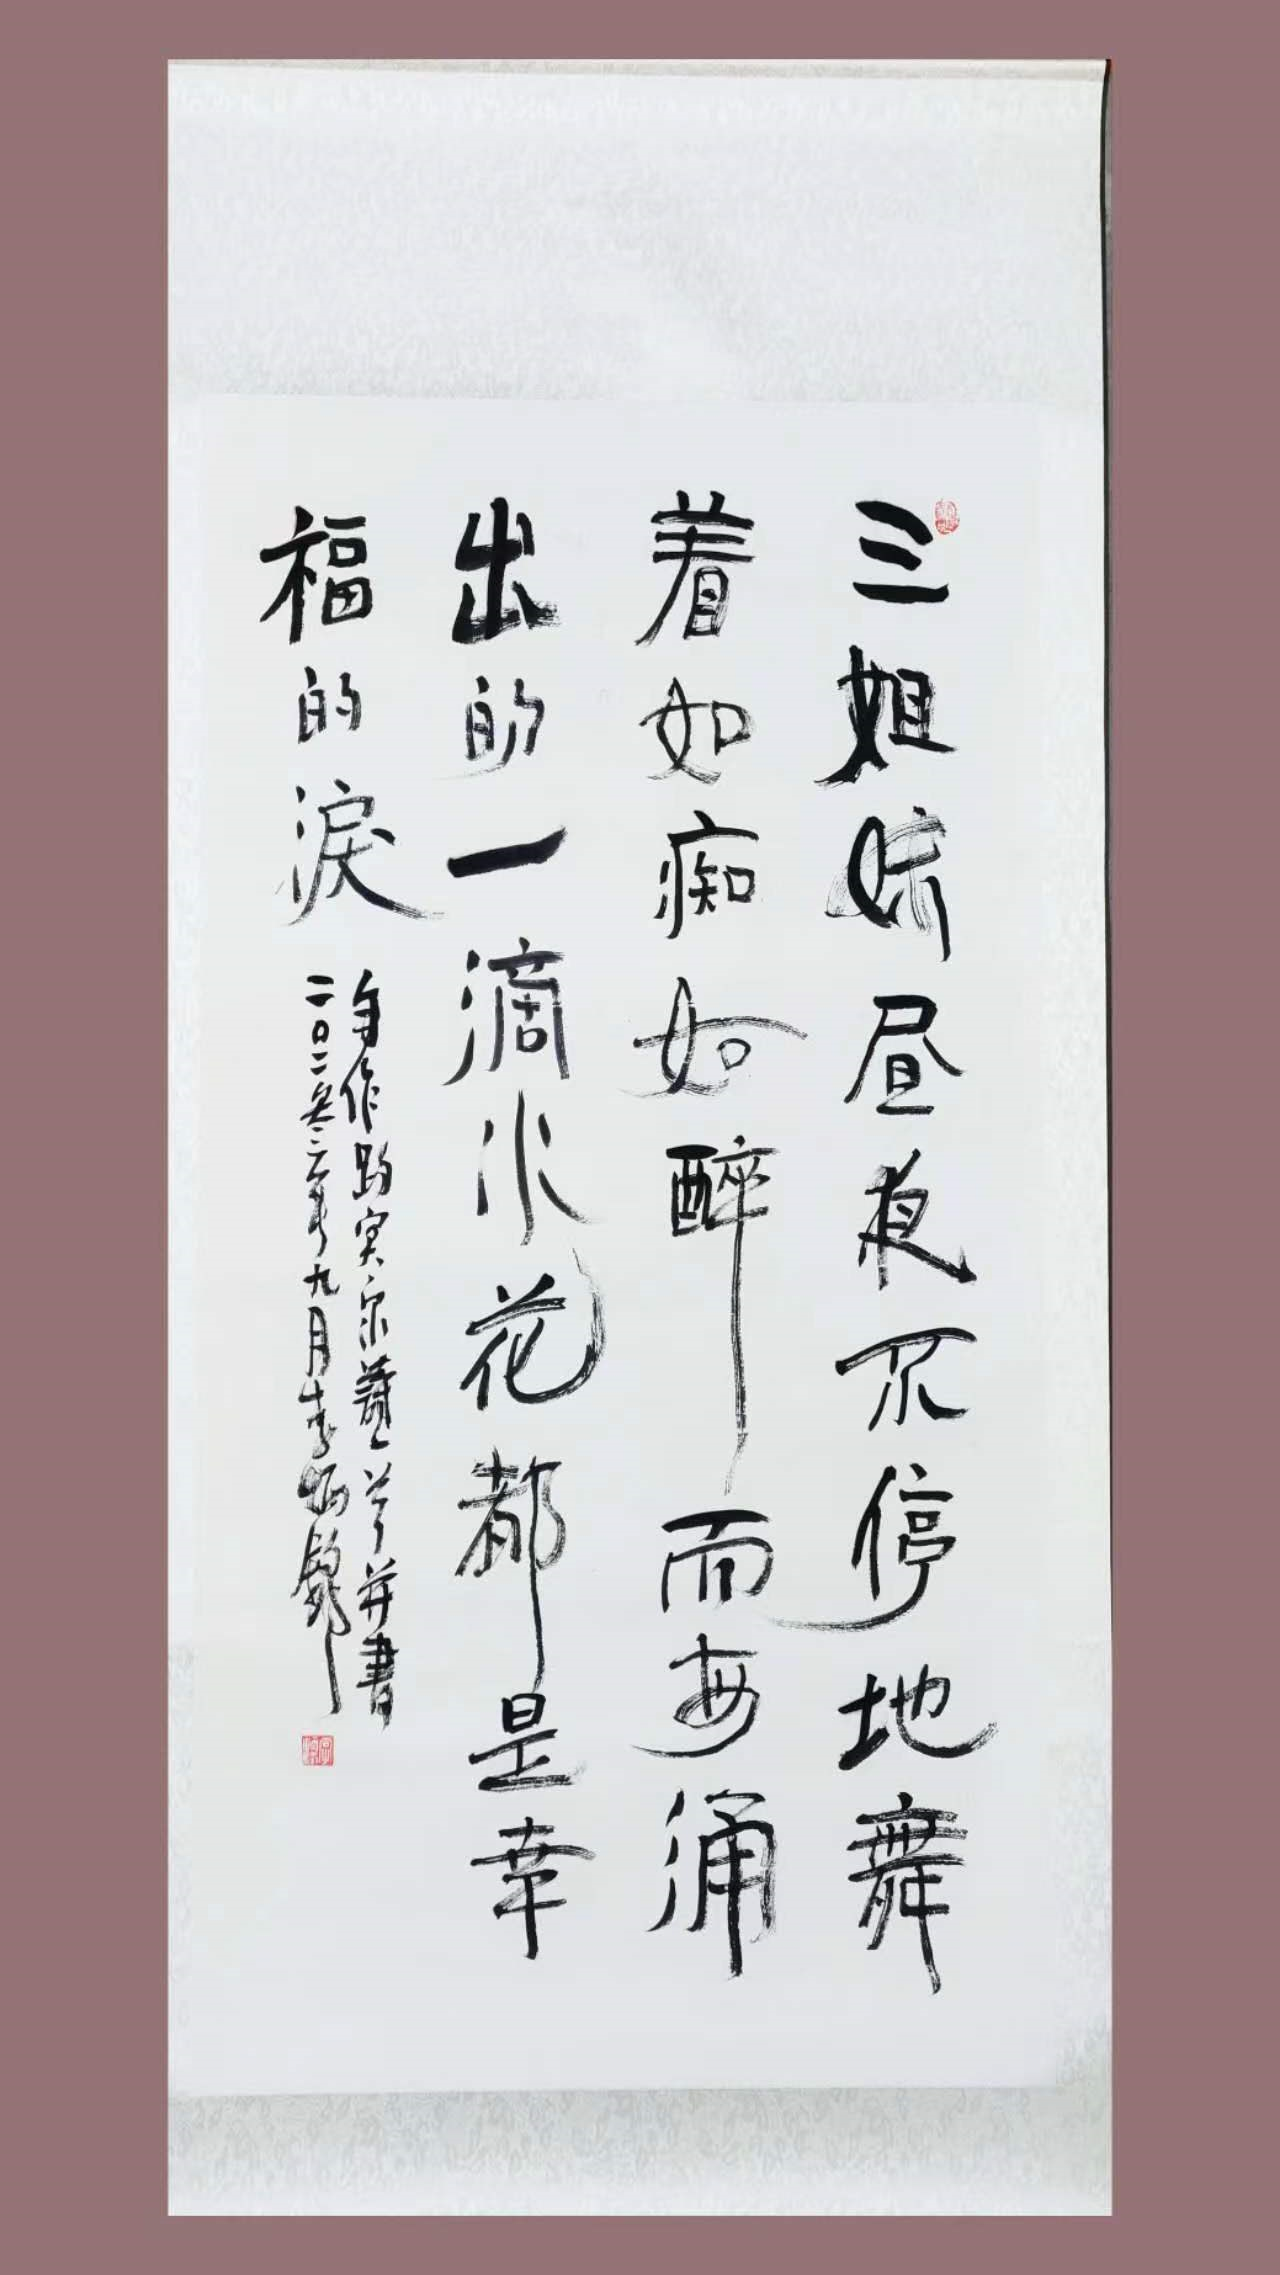 三姐妹昼夜不停地舞
着如痴如醉而每涌
出的一滴水花都是幸
福的淚
自作趵突泉并書
二〇二年九月李炳銀